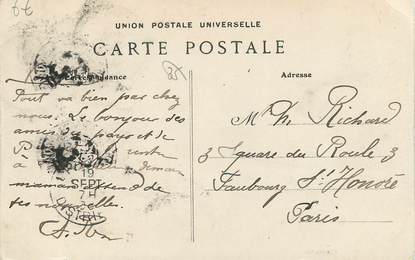 UNION POSTALE UNIVERSELLE
CARTE POSTALE
Correspondance
Adresse
Tout va bien par chez
nous. Le bonjour des
amis du pays et de
P
à demain
maman attend de
tes nouvelles.
19
SEPT
7H
M. H. Richard
3 Square du Roule 3
Faubourg St Honoré
Paris